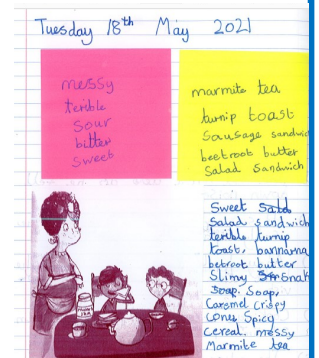 Tuesday 18th May 2021
messy
terible
sour
bitter
sweet
marmite tea
turnip toast
Sausage sandwic
beetroot butter
Salad Sandwich
Sweet
Salad sandwich
terible turnip
toast, bannarna
betroot butter
Slimy
Soap. Soap,
Caramel Crispy
Spicy
Cereal. messy
Marmite tea